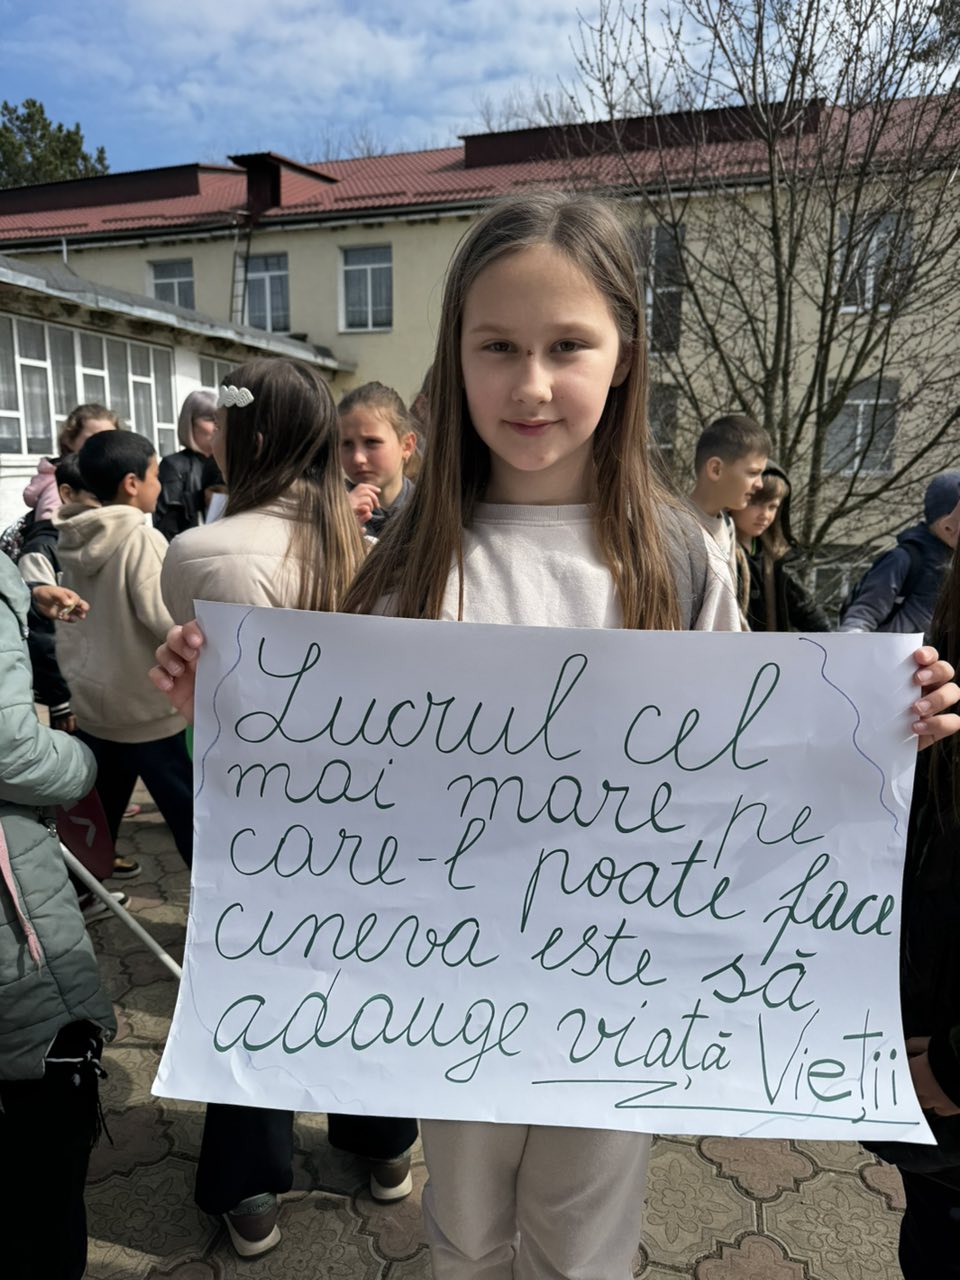 Lucrul cel
mai mare pe
care-l poate face
cineva este să
adauge viață Vieții